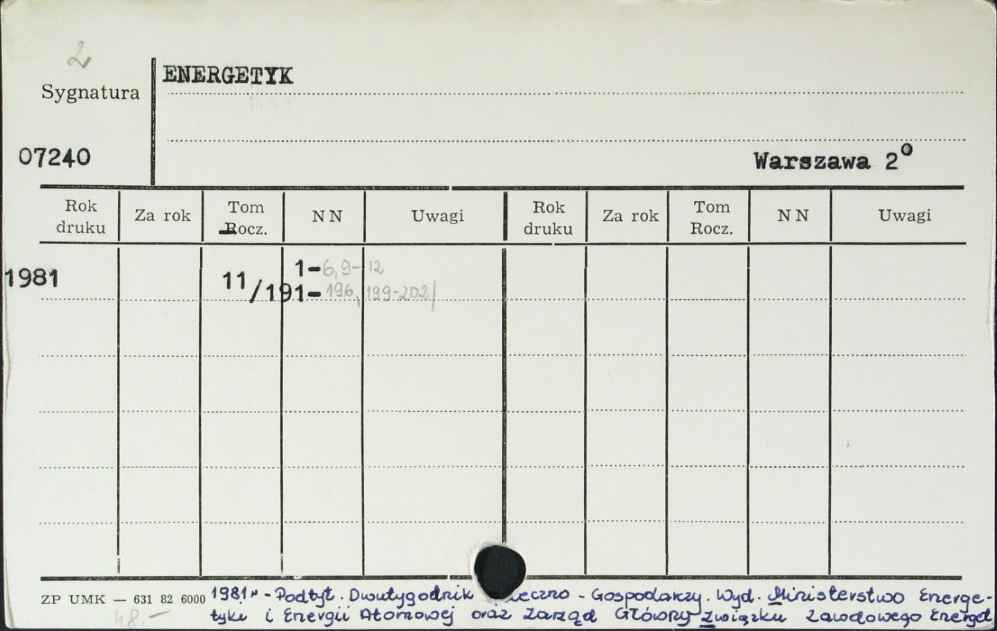 2
ENERGETYK
Sygnatura
07240
Warszawa 2°
Rok druku Za rok Tom Rocz. NN Uwagi Rok druku Za rok Tom Rocz. NN Uwagi
1981 11 1-6,9-12
/191-196,199-202/
ZP UMK — 631 82 6000 1981" - Podtyt. Dwutygodnik - Gospodarczy. Wyd. Ministerstwo Energe-
48.- tyki i Energii Atomowej oraz Zarząd Główny Związku Zawodowego Energet